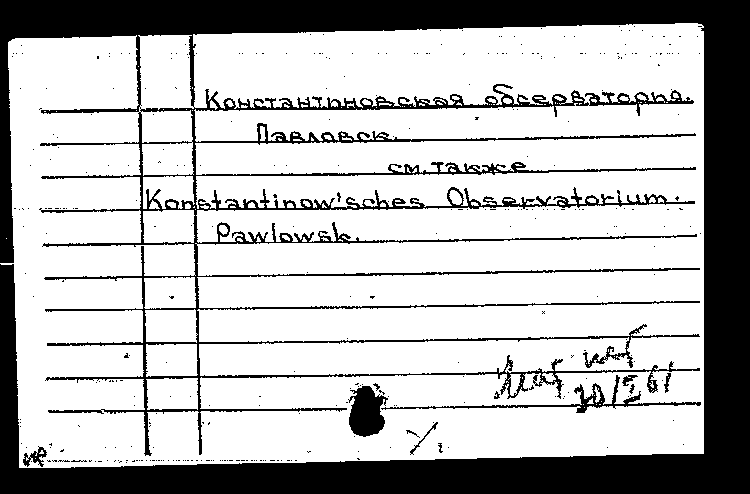 Константиновская обсерватория.
Павловск.
см. также
Konstantinow'sches Observatorium.
Pawlowsk.